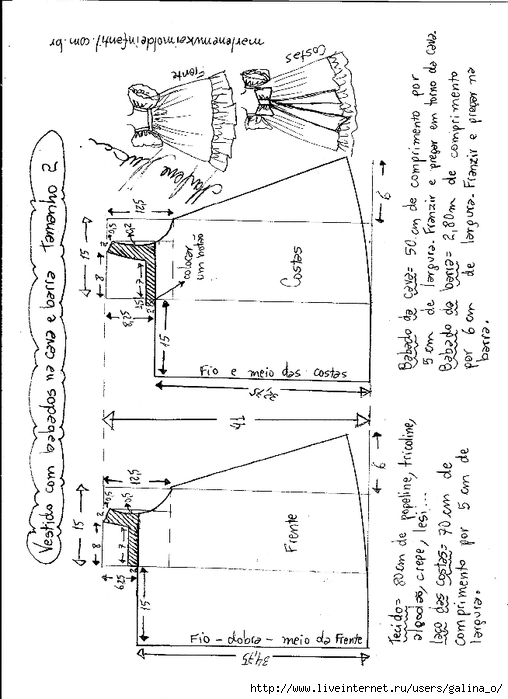 Vestido com babados na cava e barra Tamanho 2
marlenemukaimoldeinfantil.com.br
Frente
Costas
Marlene Mukai
15
8
2
0,5
0,2
12,5
8,25
1,5
7
2
colocar
um botão
15
Costas
Fio e meio das costas
32,75
6
41
15
8
2
0,5
0,5
12,5
6,25
7
2
15
Frente
Fio - dobra - meio da Frente
34,75
6
Babado da cava= 50 cm de comprimento por
5 cm de largura. Franzir e pregar em torno da cava.
Babado da barra= 2,80m de comprimento
por 6 cm de largura. Franzir e pregar na
barra.
Tecido= 80cm de popeline, tricoline,
algodão, crepe, lesi...
Laço das costas= 70 cm de
comprimento por 5 cm de
largura.
http://www.liveinternet.ru/users/galina_o/